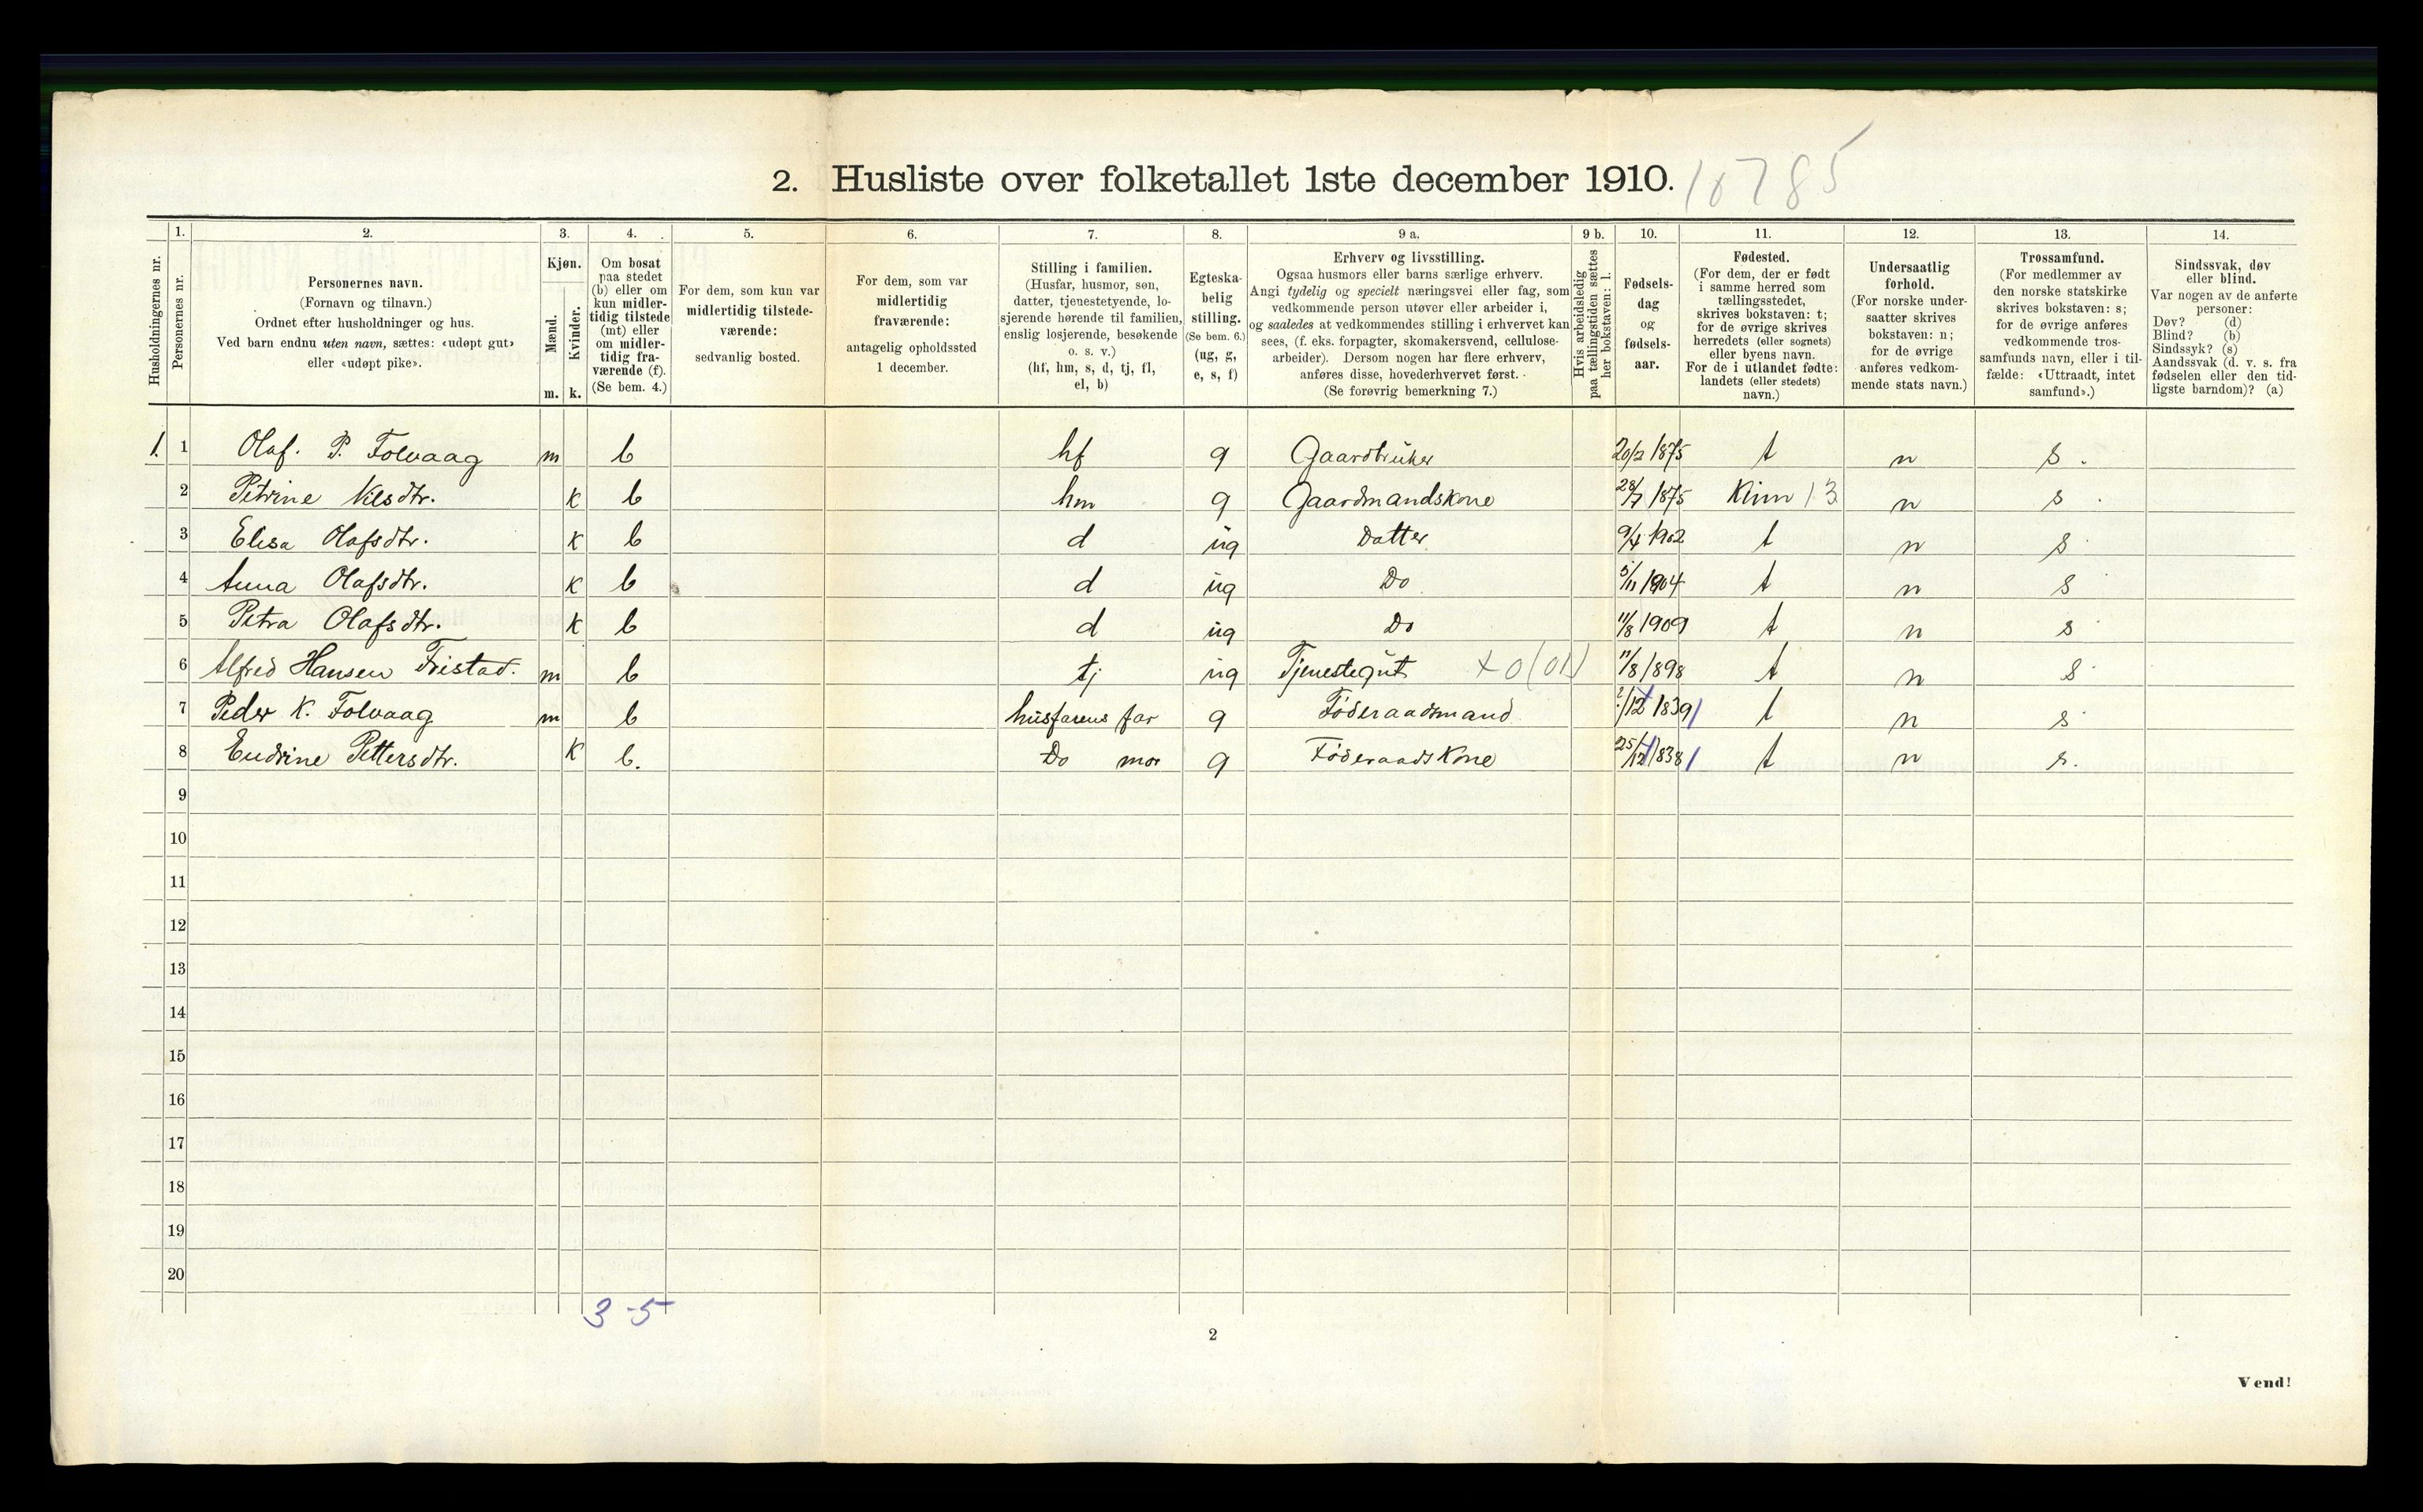 2. Husliste over folketallet 1ste december 1910. 10785
Husholdningernes nr.
1. Personernes nr.
2. Personernes navn.
(Fornavn og tilnavn.)
Ordnet efter husholdninger og hus.
Ved barn endnu uten navn, sættes: «udøpt gut»
eller «udøpt pike».
3. Kjøn.
Mænd. Kvinder.
m. k.
4. Om bosat
paa stedet
(b) eller om
kun midler-
tidig tilstede
(mt) eller
om midler-
tidig fra-
værende (f).
(Se bem. 4.)
5. For dem, som kun var
midlertidig tilstede-
værende:
sedvanlig bosted.
6. For dem, som var
midlertidig
fraværende:
antagelig opholdssted
1 december.
7. Stilling i familien.
(Husfar, husmor, søn,
datter, tjenestetyende, lo-
sjerende hørende til familien,
enslig losjerende, besøkende
o. s. v.)
(hf, hm, s, d, tj, fl,
el, b)
8. Egteska-
belig
stilling.
(Se bem. 6.)
(ug, g,
e, s, f)
9 a. Erhverv og livsstilling.
Ogsaa husmors eller barns særlige erhverv.
Angi tydelig og specielt næringsvei eller fag, som
vedkommende person utøver eller arbeider i,
og saaledes at vedkommendes stilling i erhvervet kan
sees, (f. eks. forpagter, skomakersvend, cellulose-
arbeider). Dersom nogen har flere erhverv,
anføres disse, hovederhvervet først.
(Se forøvrig bemerkning 7.)
9 b. Hvis arbeidsledig
paa tællingstiden sættes
her bokstaven: l.
10. Fødsels-
dag
og
fødsels-
aar.
11. Fødested.
(For dem, der er født
i samme herred som
tællingsstedet,
skrives bokstaven: t;
for de øvrige skrives
herredets (eller sognets)
eller byens navn.
For de i utlandet fødte:
landets (eller stedets)
navn.)
12. Undersaatlig
forhold.
(For norske under-
saatter skrives
bokstaven: n;
for de øvrige
anføres vedkom-
mende stats navn.)
13. Trossamfund.
(For medlemmer av
den norske statskirke
skrives bokstaven: s;
for de øvrige anføres
vedkommende tros-
samfunds navn, eller i til-
fælde: «Uttraadt, intet
samfund».)
14. Sindssvak, døv
eller blind.
Var nogen av de anførte
personer:
Døv? (d)
Blind? (b)
Sindssyk? (s)
Aandssvak (d. v. s. fra
fødselen eller den tid-
ligste barndom)? (a)
1. 1 Olaf. P. Folvaag m b hf g Gaardbruker 20/2 1875 t n s.
2 Petrine Nilsdtr. k b hm g Gaardmandskone 28/7 1875 Kinn 13 n s.
3 Elisa Olafsdtr. k b d ug Datter 9/4 1902 t n s
4 Anna Olafsdtr. k b d ug Do 5/11 1904 t n s
5 Petra Olafsdtr. k b d ug Do 11/8 1909 t n s
6 Alfred Hansen Fristad. m b tj ug Tjenestegut 11/8 1898 t n s
7 Peder K. Folvaag m b husfarens far g Føderaadsmand ?/12 1839 t n s
8 Endrine Pettersdtr. k b. Do mor g Føderaadskone 25/12 1838 t n s.
9
10
11
12
13
14
15
16
17
18
19
20
3-5
2
Vend!